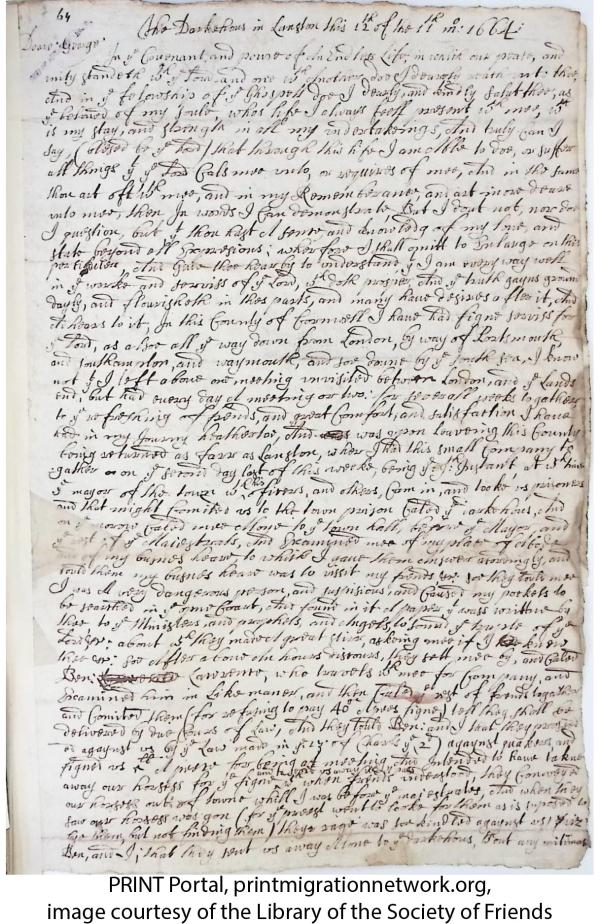 64
The Darkehous in Lanston this 12th of the 11th mo: 1664:
Deare George
In ye Covenant, and powre of An Endless Life, in which our peace, and
unity standeth wth ye Lord, and one wth Another, doe I dearely: thee,
And in ye felowship of ye Ghospell doe I dearly, and kindly Salut thee, as
ye beloved of my soule, whos life I always feell present wth mee, wch
is my stay, and strength in all my undertakeings, And truly Can I
say (blesed be ye Lord) that through this life I am able to doe, or suffer
all things yt ye Lord Cals mee unto, or requires of mee, And in the same
thou art oft wth mee, and in my Rememberance, and art more deare
unto mee, then In words I Can demonstrate But I dout not, nor doe
I question, but yt thou hast A sence and knowledg of my love, and
state beyond all Expresions; wherfore I shall omitt to Inlarge on this
pertickuler, And Give thee hearby to understand, yt I am every way well
in ye worke and serviss of ye Lord, yt doth prosper, And ye truth gayns ground
dayly, and flourisheth in thes parts, and many have desires after it, And
Adhears to it, In this County of Cornwell I have had fine serviss for
ye Lord, as Alsoe all ye way down from London, by way of Portsmouth
and southamton, and waymouth, and soe downe by ye south sea, I know
not yt I left above one meeting unvisited between London, and ye Lands
end; but had every day A meeting or two: for severall weeks togather
to ye refreshing of frends, and great Comfort, and satisfaction I have
had in my Jurny heatherto, And was upon leaveing this County
being returned as farr as Lanston, wher I had this small Company to
gather on ye second day last of this weeke, being ye 9th: Instant at wch time
ye mayor of the town wth his officers, and others, Cam in, and tooke us prisoners
and that night Comited us to the town prison Called ye Darkehous, And
on ye morow Called mee Alone to ye town hall, before ye Mayor, and
ye rest of ye Maiestraits, And Examined mee of my place of
my busines heare to which I gave them Answer acordingly, and
tould them my busines heare was to vissit my frends soe they tould mee
I was A very dangerous person, and suspicious, and Caused my pockets to
be searched in ye ome Court, And found in it A paper yt was written by
thee to ye Ministers, and prophets, and Angels, to sound ye trumpe of ye
Lord: about wch they made A great stirr, askeing mee if I knew
thee: soe After above An hours discours, they sett mee by, and Called
Ben: Lawrence, who travels wth mee for Company, and
Examined him in Like maner, and then Called ye rest of frends togather
and Comited them (for refusing to pay 40s fines) tell they shall be
delivered by due Cours of Law, And they tould Ben: and I that they
ed against us by ye Law made in ye of Charls ye (2d) against quakers, and
figned us A peece for being at meeting, And Intended to have taken
away our horsses for ye figne, when frends understand, they Conveyed
our horses out of towne whill I was before ye majestrates, And when they
saw our horsses was gon (for ye preest went to looke for them as is suposed to
see them, but not finding them) theyr rage was soe kindled against us
Ben, and I; that they sent us away Alone to ye darkehous, without any mitimus
PRINT Portal, printmigrationnetwork.org,
image courtesy of the Library of the Society of Friends